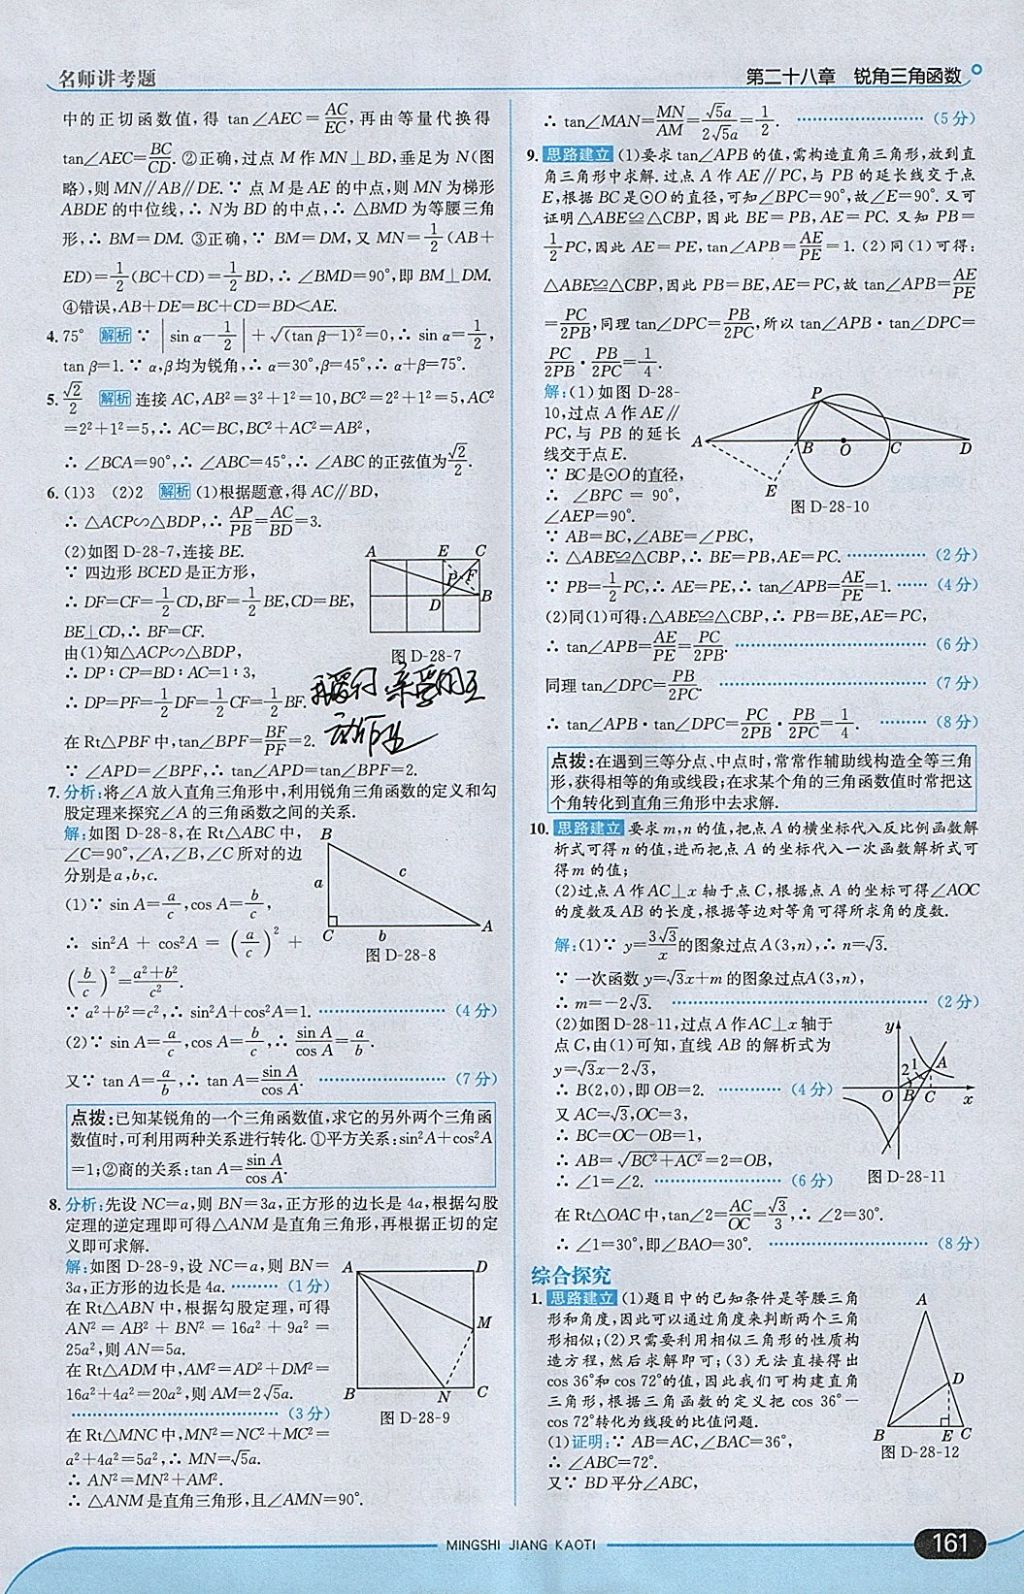 名师讲考题
第二十八章 锐角三角函数
中的正切函数值,得 tan∠AEC=AC/EC,再由等量代换得
tan∠AEC=BC/CD.②正确,过点 M 作 MN⊥BD,垂足为 N(图
略),则 MN∥AB∥DE.∵ 点 M 是 AE 的中点,则 MN 为梯形
ABDE 的中位线,∴ N为 BD 的中点,∴ △BMD 为等腰三角
形,∴ BM=DM. ③正确,∵ BM=DM,又 MN=1/2(AB+
ED)=1/2(BC+CD)=1/2BD,∴ ∠BMD=90°,即 BM⊥DM.
④错误,AB+DE=BC+CD=BD<AE.
4. 75° 解析 ∵ |sin α-1/2|+√(tan β-1)²=0,∴ sin α=1/2,
tan β=1.∵ α,β均为锐角,∴ α=30°,β=45°,∴ α+β=75°.
5. √2/2 解析 连接 AC,AB²=3²+1²=10,BC²=2²+1²=5,AC²
=2²+1²=5,∴ AC=BC,BC²+AC²=AB²,
∴ ∠BCA=90°,∴ ∠ABC=45°,∴ ∠ABC的正弦值为√2/2.
6. (1)3 (2)2 解析 (1)根据题意,得 AC∥BD,
∴ △ACP∽△BDP,∴ AP/PB=AC/BD=3.
(2)如图 D-28-7,连接 BE.
∵ 四边形 BCED 是正方形,
∴ DF=CF=1/2CD,BF=1/2BE,CD=BE,
BE⊥CD,∴ BF=CF.
由(1)知△ACP∽△BDP,
∴ DP∶CP=BD∶AC=1∶3,
∴ DP=PF=1/2DF=1/2CF=1/2BF.
在 Rt△PBF 中,tan∠BPF=BF/PF=2.
∵ ∠APD=∠BPF,∴ tan∠APD=tan∠BPF=2.
A E C
P F
D B
图 D-28-7
7. 分析:将∠A 放入直角三角形中,利用锐角三角函数的定义和勾
股定理来探究∠A 的三角函数之间的关系.
解:如图 D-28-8,在 Rt△ABC 中,
∠C=90°,∠A,∠B,∠C 所对的边
分别是a,b,c.
(1)∵ sin A=a/c,cos A=b/c,
∴ sin²A + cos²A = (a/c)² +
(b/c)²=a²+b²/c².
∵ a²+b²=c²,∴ sin²A+cos²A=1. ……………… (4分)
(2)∵ sin A=a/c,cos A=b/c,∴ sin A/cos A=a/b.
又∵ tan A=a/b,∴ tan A=sin A/cos A. ……………… (7分)
B
a c
C b A
图 D-28-8
点拨:已知某锐角的一个三角函数值,求它的另外两个三角函
数值时,可利用两种关系进行转化.①平方关系:sin²A+cos²A
=1;②商的关系:tan A=sin A/cos A.
8. 分析:先设 NC=a,则 BN=3a,正方形的边长是 4a,根据勾股
定理的逆定理即可得△ANM 是直角三角形,再根据正切的定
义即可求解.
解:如图 D-28-9,设 NC=a,则 BN=
3a,正方形的边长是 4a. ……… (1分)
在 Rt△ABN 中,根据勾股定理,可得
AN² = AB² + BN² = 16a² + 9a² =
25a²,则 AN=5a.
在 Rt△ADM 中,AM²=AD²+DM²=
16a²+4a²=20a²,则 AM=2√5a.
……………………………… (3分)
在 Rt△MNC 中,MN²=NC²+MC²=
a²+4a²=5a²,∴ MN=√5a.
∴ AN²=MN²+AM².
∴ △ANM 是直角三角形,且∠AMN=90°.
A D
M
B N C
图 D-28-9
∴ tan∠MAN=MN/AM=√5a/2√5a=1/2. ……………… (5分)
9. 思路建立 (1)要求 tan∠APB 的值,需构造直角三角形,放到直
角三角形中求解.过点 A 作 AE∥PC,与 PB 的延长线交于点
E,根据 BC 是⊙O 的直径,可知∠BPC=90°,故∠E=90°.又可
证明△ABE≌△CBP,因此 BE=PB,AE=PC.又知 PB=
1/2PC,因此 AE=PE,tan∠APB=AE/PE=1.(2)同(1)可得:
△ABE≌△CBP,因此 PB=BE,AE=PC,故 tan∠APB=AE/PE
=PC/2PB,同理 tan∠DPC=PB/2PC,所以 tan∠APB·tan∠DPC=
PC/2PB·PB/2PC=1/4.
解:(1)如图 D-28-
10,过点 A 作 AE∥
PC,与 PB 的延长
线交于点 E.
∵ BC是⊙O的直径,
∴ ∠BPC = 90°,
∠AEP=90°.
∵ AB=BC,∠ABE=∠PBC,
∴ △ABE≌△CBP,∴ BE=PB,AE=PC. …………… (2分)
∵ PB=1/2PC,∴ AE=PE,∴ tan∠APB=AE/PE=1. …… (4分)
(2)同(1)可得:△ABE≌△CBP,∴ PB=BE,AE=PC,
∴ tan∠APB=AE/PE=PC/2PB. ……………………… (6分)
同理 tan∠DPC=PB/2PC. ……………………… (7分)
∴ tan∠APB·tan∠DPC=PC/2PB·PB/2PC=1/4. ……… (8分)
P
A B O C D
E
图 D-28-10
点拨:在遇到三等分点、中点时,常常作辅助线构造全等三角
形,获得相等的角或线段;在求某个角的三角函数值时常把这
个角转化到直角三角形中去求解.
10. 思路建立 要求 m,n 的值,把点 A 的横坐标代入反比例函数解
析式可得 n 的值,进而把点 A 的坐标代入一次函数解析式可
得 m 的值;
(2)过点 A 作 AC⊥x 轴于点 C,根据点 A 的坐标可得∠AOC
的度数及 AB 的长度,根据等边对等角可得所求角的度数.
解:(1)∵ y=3√3/x的图象过点 A(3,n),∴ n=√3.
∵ 一次函数 y=√3x+m 的图象过点A(3,n),
∴ m=-2√3. ……………………………… (2分)
(2)如图 D-28-11,过点 A 作AC⊥x 轴于
点 C,由(1)可知,直线 AB 的解析式为
y=√3x-2√3,
∴ B(2,0),即 OB=2. ……… (4分)
又 AC=√3,OC=3,
∴ BC=OC-OB=1,
∴ AB= √BC²+AC²=2=OB,
∴ ∠1=∠2. ……………… (6分)
在 Rt△OAC 中,tan∠2=AC/OC=√3/3,∴ ∠2=30°.
∴ ∠1=30°,即∠BAO=30°. ……………… (8分)
y
2 1 A
O B C x
图 D-28-11
综合探究
1. 思路建立 (1)题目中的已知条件是等腰三角
形和角度,因此可以通过角度来判断两个三角
形相似;(2)只需要利用相似三角形的性质构
造方程,然后求解即可;(3)无法直接得出
cos 36°和 cos 72°的值,因此我们可构建直角
三角形,根据三角函数的定义把 cos 36°—
cos 72°转化为线段的比值问题.
(1)证明:∵ AB=AC,∠BAC=36°,
∴ ∠ABC=72°.
又∵ BD平分∠ABC,
A
D
B E C
图 D-28-12
MINGSHI JIANG KAOTI
161